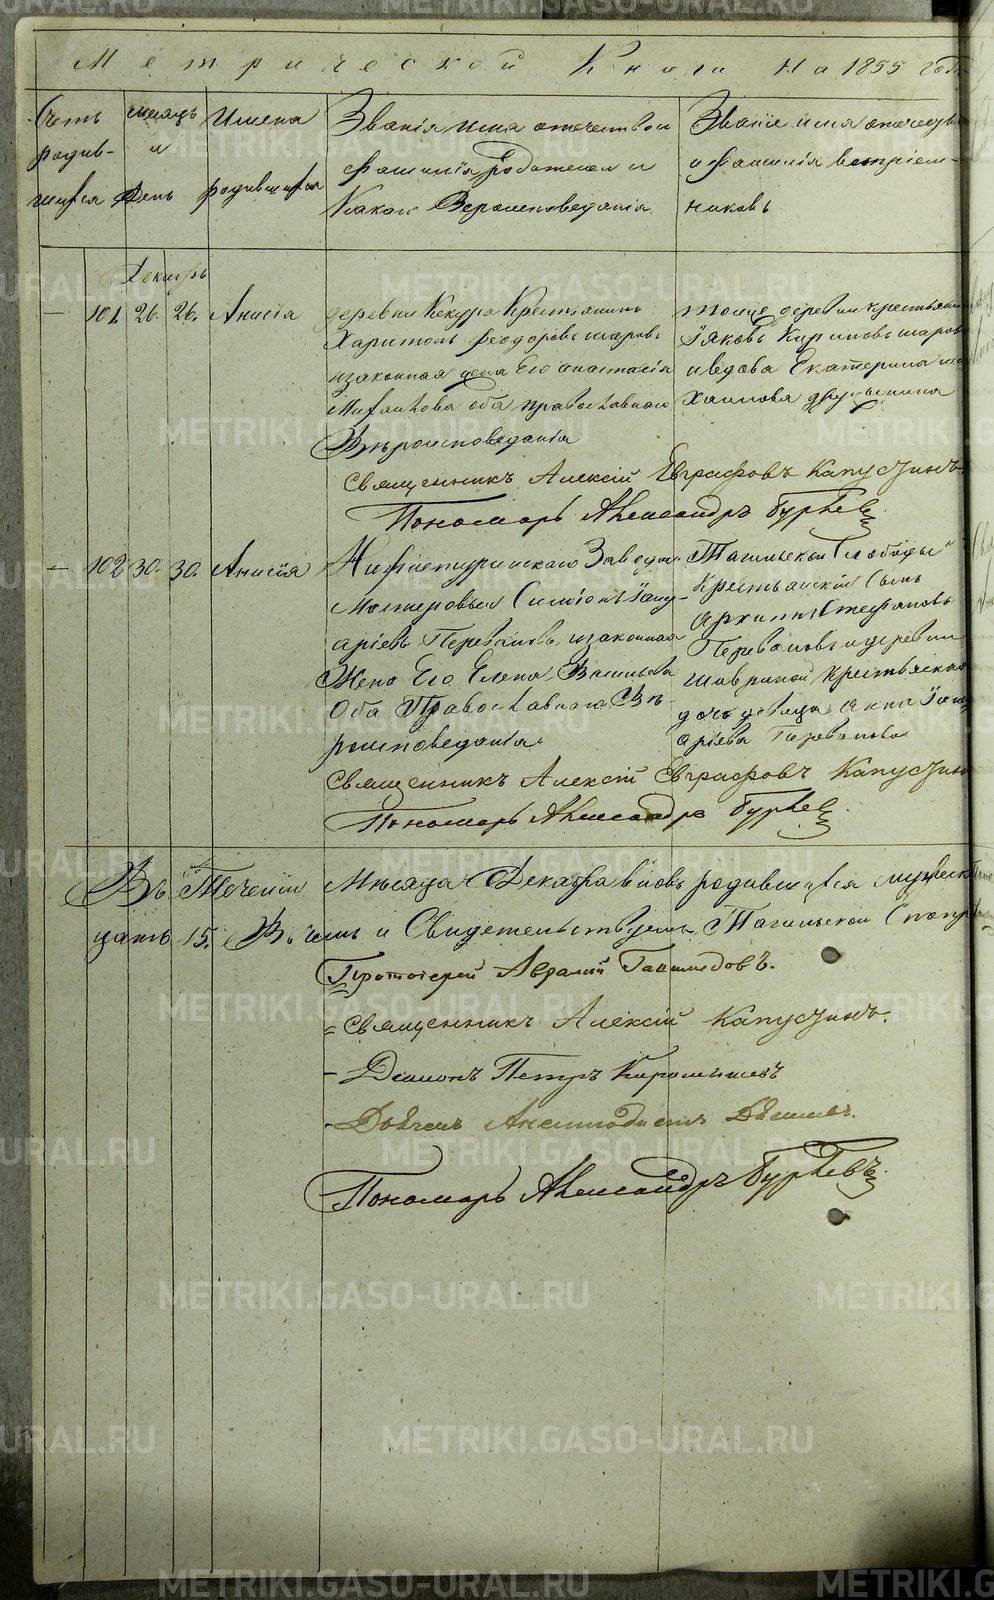 Метрической Книги на 1855 годъ
Счетъ родив- шихся
Месяцъ и День
Имена родившихся
Званія имя отечество и
фамилія Родителей и
Какаго Вероисповеданія
Званіе имя отечество
и фамилія воспріем-
никовъ
Декабрь
101. 26. 26. Анисія
деревни Кекура Крестьянинъ
Харитонъ Феодоровъ
изаконная жена Его Анастасія
оба православнаго
Вѣроисповеданія
тойже деревни крестьянинъ
Іяковъ Кириловъ
и вдова Екатерина
Священникъ Алексій Евграфовъ Капустинъ
Пономарь Александръ Гурьевъ
102 30. 30. Анисія
Завода
Мастеровый Симіонъ Іану-
аріевъ Перевановъ изаконная
Жена Его Елена Васильева
Оба Православнаго Вѣ-
роисповеданія
Тагильской Слободы
Крестьянскій Сынъ
Архипъ Стефановъ
Перевановъ и деревни
Крестьянская
дочь девица Анна Іану
аріева
Священникъ Алексій Евграфовъ Капустинъ
Пономарь Александръ Гурьевъ
Въ Течении Месяца Декабря вновь родившихся мужеск
15. Въ чемъ и Свидетельствуемъ Тагильской
Протоіерей Аврамій
Священникъ Алексій Капустинъ.
Діаконъ Петръ
Дьячекъ
Пономарь Александръ Гурьевъ
METRIKI.GASO-URAL.RU